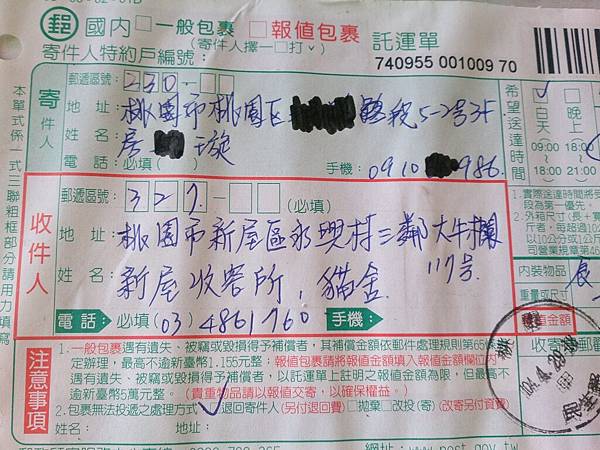 郵 國內 □一般包裹 □報值包裹 託運單
(寄件人擇一打ˇ)
寄件人特約戶編號:
740955 001009 70
本單式係一式三聯粗框部分請用力填寫
寄件人
郵遞區號: 330-
地址: 桃園市桃園區 5-2號3F
姓名: 房 璇
電話: 必填( ) 手機: 0910 986
希望送達時間
白天 晚上
09:00 18:00
18:00 21:00
收件人
郵遞區號: 327- (必填)
地址: 桃園市新屋區永興村三鄰大牛欄117號
姓名: 新屋收容所,貓舍
電話: 必填(03) 4861760 手機:
1.實際送達時間將受
段為第一優先。
2.外箱尺寸(長+寬
斤者,每超過10公
以10公分(1公斤
司營業規章第46
內裝物品
重量或尺寸
報值金額
注意事項
1.一般包裹遇有遺失、被竊或毀損得予補償者,其補償金額依郵件處理規則第65條
定辦理,最高不逾新臺幣1,155元整;報值包裹請將報值金額填入報值金額欄位內
遇有遺失、被竊或毀損得予補償者,以託運單上註明之報值金額為限,但最高不
逾新臺幣5萬元整。(貴重物品請以報值交寄,以確保權益。)
2.包裹無法投遞之處理方式 ✓退回寄件人(另付退回費) □拋棄 □改投(寄) (改寄另付資費)
姓名: 地址: